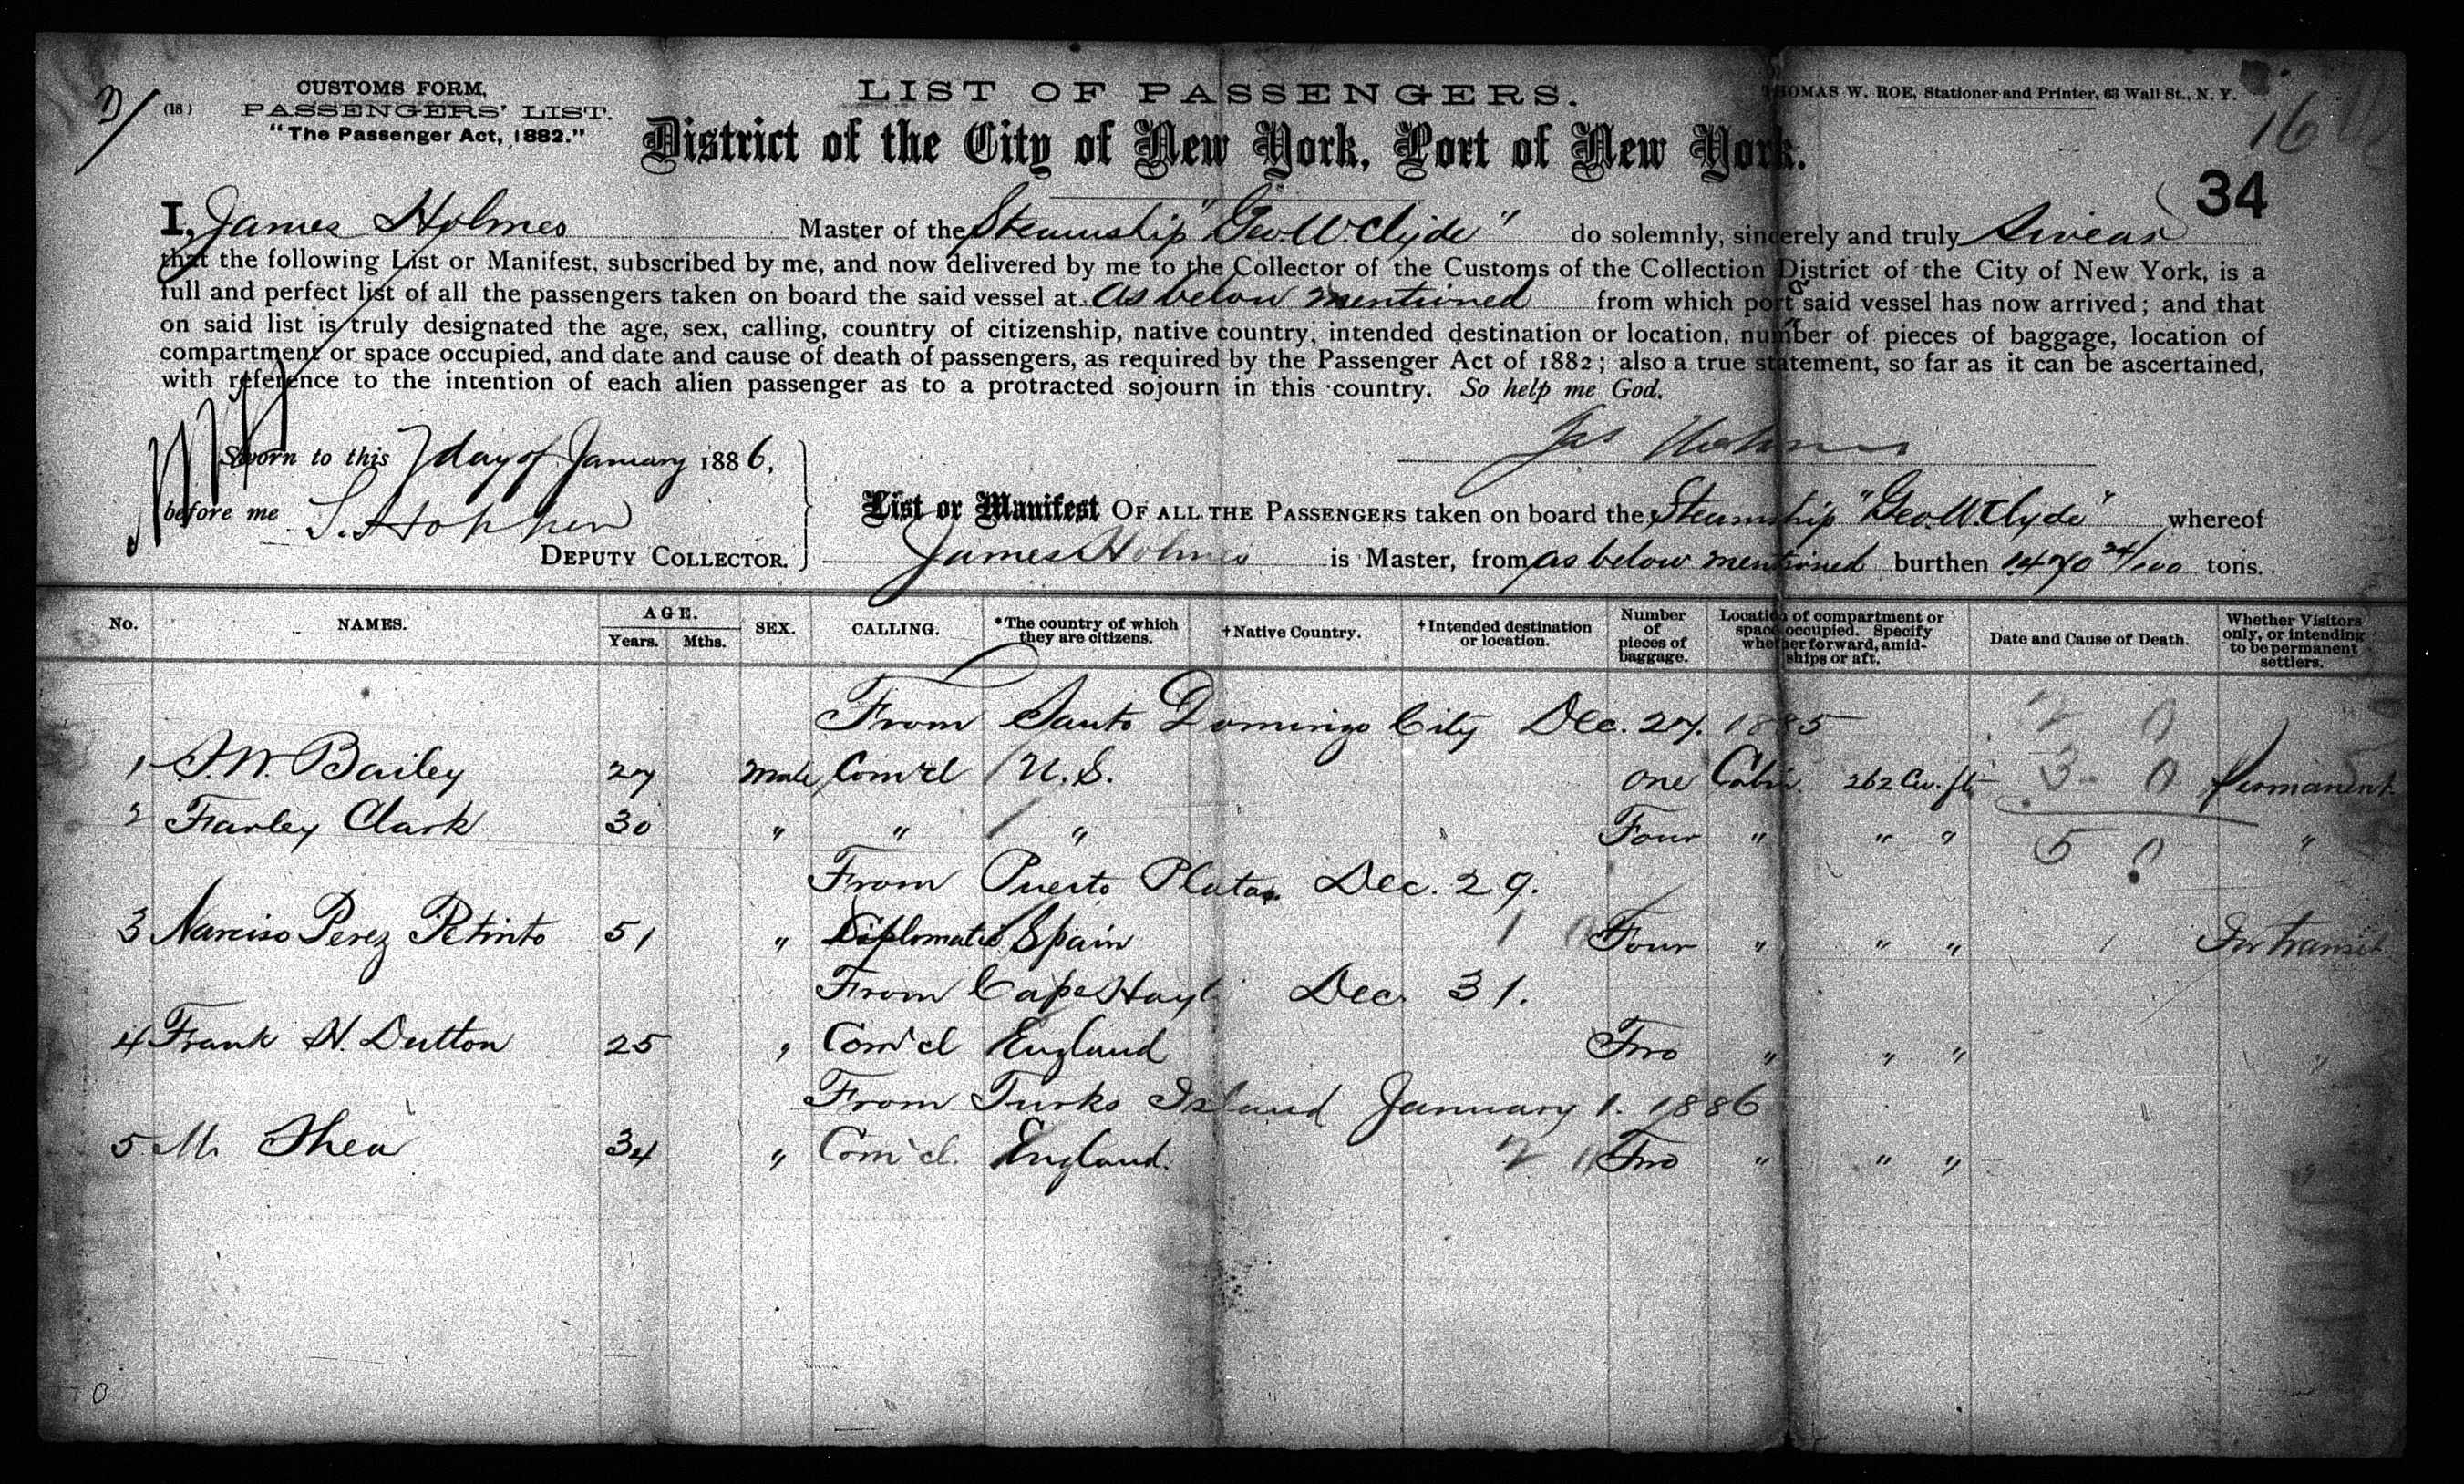 CUSTOMS FORM,
(18) PASSENGERS' LIST.
"The Passenger Act, 1882."
LIST OF PASSENGERS.
THOMAS W. ROE, Stationer and Printer, 63 Wall St., N. Y.
16
District of the City of New York, Port of New York.
34
I, James Holmes Master of the Steamship "Geo. W. Clyde" do solemnly, sincerely and truly Swear
that the following List or Manifest, subscribed by me, and now delivered by me to the Collector of the Customs of the Collection District of the City of New York, is a
full and perfect list of all the passengers taken on board the said vessel at As below mentioned from which ports said vessel has now arrived; and that
on said list is truly designated the age, sex, calling, country of citizenship, native country, intended destination or location, number of pieces of baggage, location of
compartment or space occupied, and date and cause of death of passengers, as required by the Passenger Act of 1882; also a true statement, so far as it can be ascertained,
with reference to the intention of each alien passenger as to a protracted sojourn in this country. So help me God.
Jas Holmes
Sworn to this 7 day of January 1886,
before me S. Hopper
DEPUTY COLLECTOR.
List or Manifest OF ALL THE PASSENGERS taken on board the Steamship "Geo. W. Clyde" whereof
James Holmes is Master, from as below mentioned burthen 1470 24/100 tons.
No. NAMES. AGE. Years. Mths. SEX. CALLING. *The country of which they are citizens. †Native Country. †Intended destination or location. Number of pieces of baggage. Location of compartment or space occupied. Specify whether forward, amidships or aft. Date and Cause of Death. Whether Visitors only, or intending to be permanent settlers.
From Santo Domingo City Dec. 27. 1885 2 0
1 J. W. Bailey 27 Male Com'cl U.S. One Cabin 262 Cu. ft. 3 0 Permanent
2 Farley Clark 30 " " " Four " " " 5 0 "
From Puerto Plata Dec. 29.
3 Narciso Perez Petinto 51 " Diplomatic Spain 1 Four " " " In transit
From Cape Hayti Dec. 31.
4 Frank H. Dutton 25 " Com'cl England Two " " " "
From Turks Island January 1. 1886
5 M. Shea 34 " Com'cl. England. 2 Two " " " "